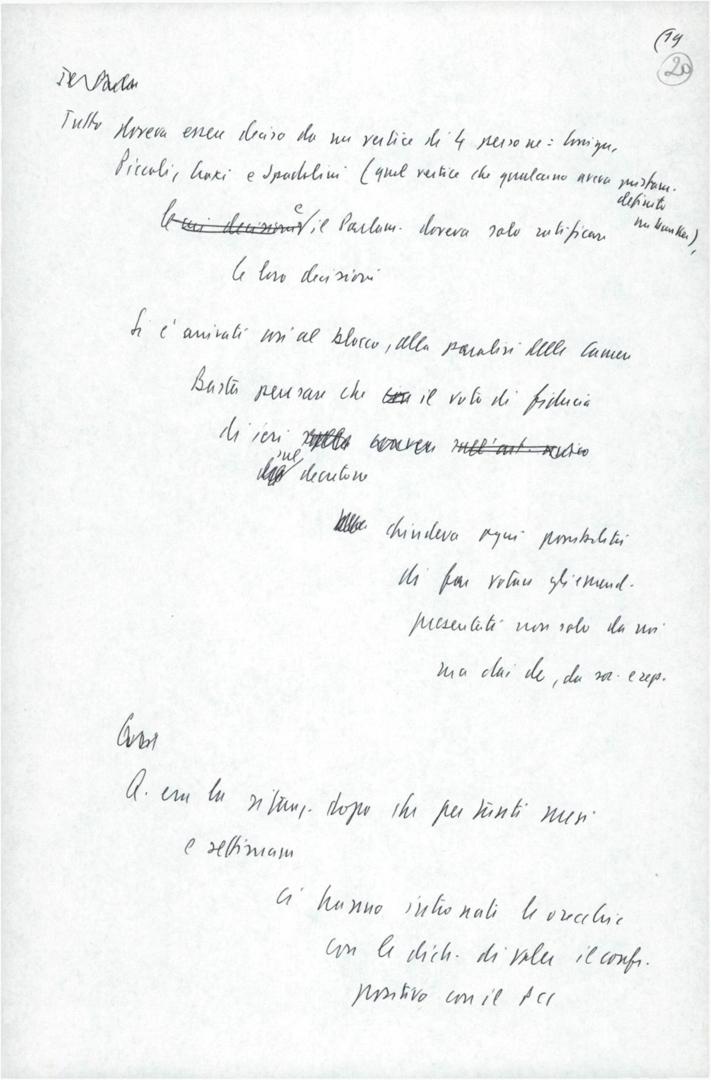 (19
20
Tutto doveva essere deciso da un vertice di 4 persone:
Piccoli, Craxi e Spadolini (quel vertice che qualcuno aveva giustam.
definito
un bunker),
le cui decisioni e il Parlam. doveva solo ratificare
le loro decisioni
Si è arrivati così al blocco, alla paralisi delle Camere
Basta pensare che il voto di fiducia
di ieri
sul decretone
chiudeva ogni possibilità
di far votare gli emend.
presentati non solo da noi
ma dai dc, da soc. e rep.
Q. era la situaz. dopo che per tanti mesi
e settimane
ci hanno intronati le orecchie
con le dich. di voler il confr.
positivo con il PCI